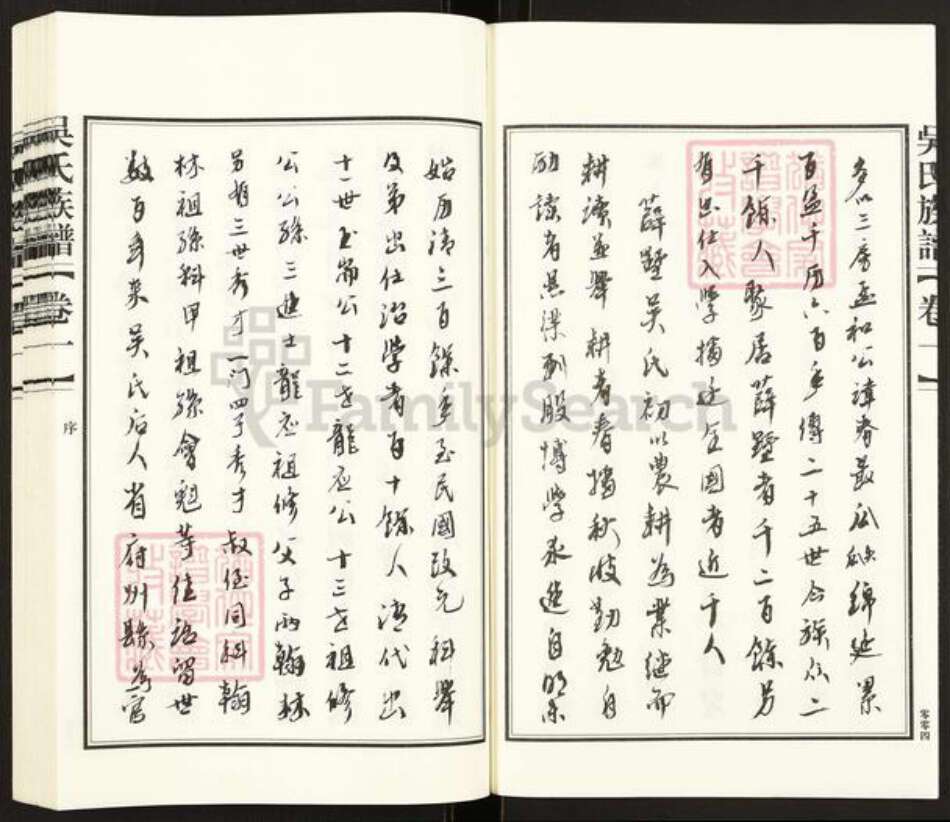 吳氏族譜【卷一】
零零四
多似三房孟和公諱者最瓜瓞綿延累
百盈千历六百年傳二十五世合族众二
千餘人聚居薛墅者千二百餘另
有出仕入學播迁全國者近千人
薛墅吳氏初以農耕為業继而
耕读並舉耕者春播秋收勤勉自
励读者懸梁刺股博学求進自明末
始历清三百餘年至民國政元科舉
及第出仕治学者百十餘人清代出
十一世玉公十二世龍应公十三世祖修
公公孫三進士龍应祖修父子两翰林
另有三世秀才一门四子秀才叔侄同科翰
林祖孫科甲祖孫會魁等佳话留世
数百年来吳氏后人省府州縣為官
吳氏族譜【卷一】
序
FamilySearch